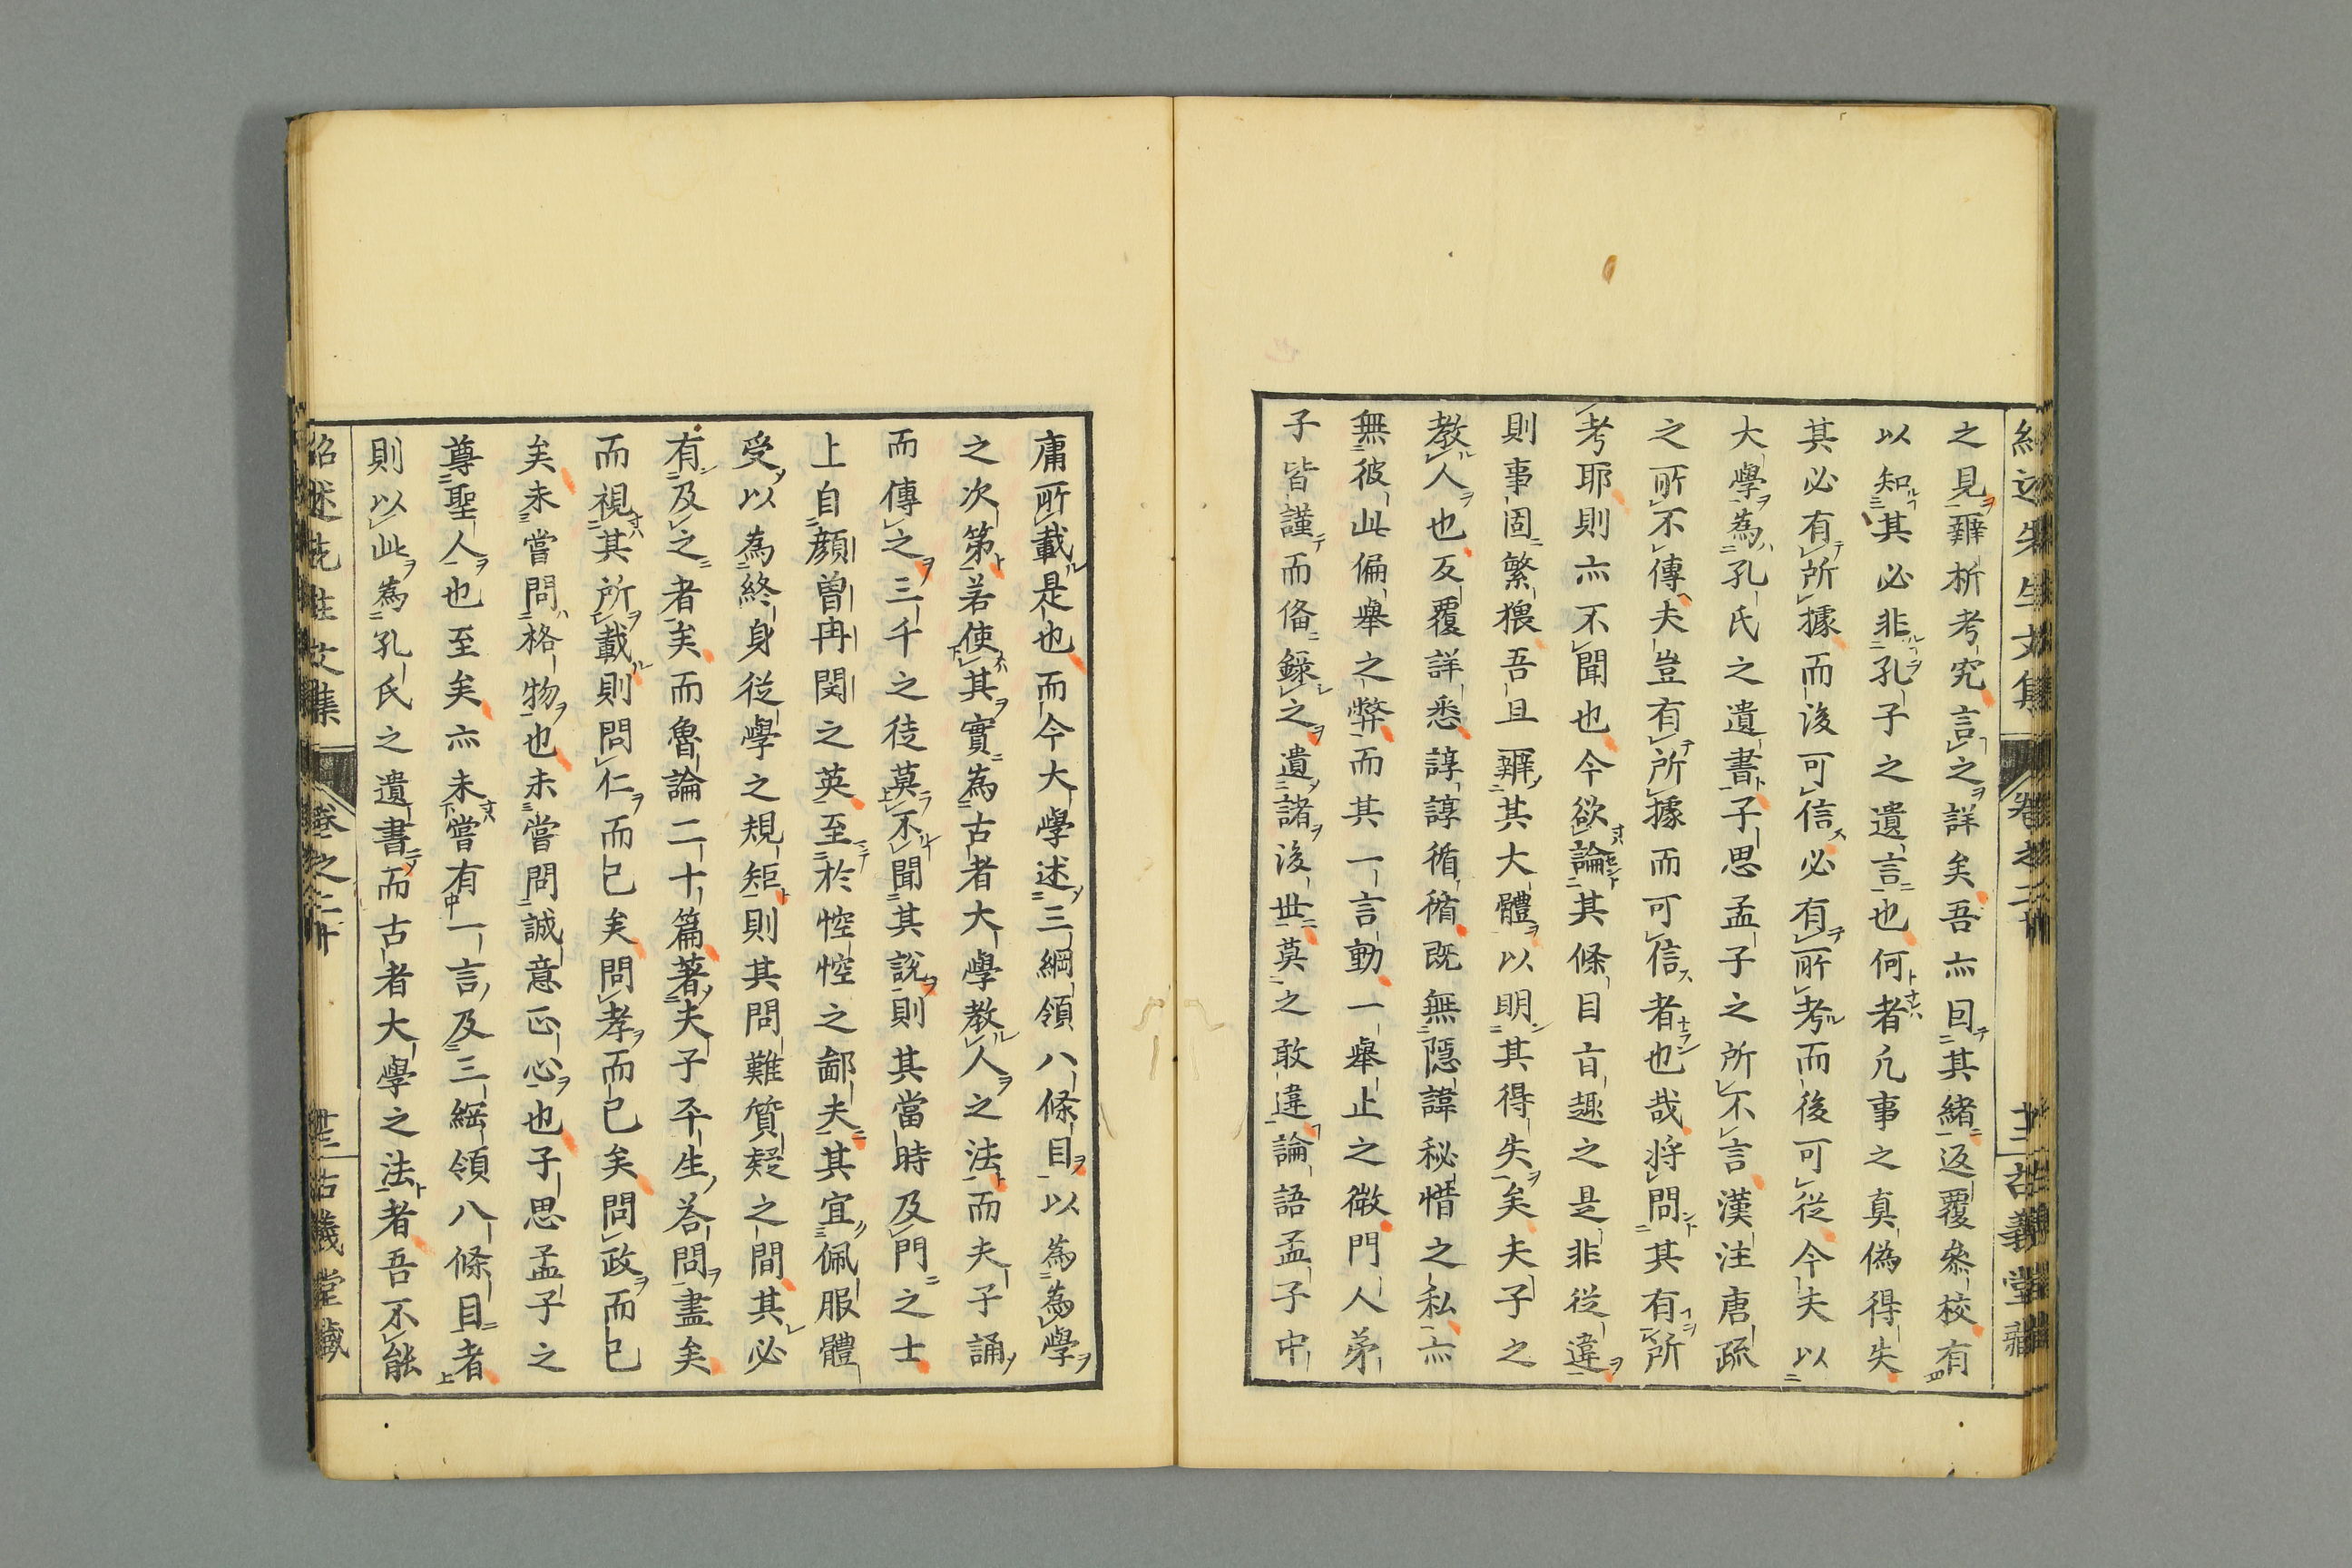 紹述先生文集 卷之二十 古義堂藏
之見辨析考究言之詳矣吾亦因其緒返覆叅校有
以知其必非孔子之遺言也何者凡事之真偽得失
其必有所據而後可信必有所考而後可從今夫以
大學為孔氏之遺書子思孟子之所不言漢注唐疏
之所不傳夫豈有所據而可信者也哉将問其有所
考耶則亦不聞也今欲論其條目旨趣之是非從違
則事固繁猥吾且辨其大體以明其得失矣夫子之
教人也反覆詳悉諄諄循循既無隱諱秘惜之私亦
無彼此偏舉之弊而其一言動一舉止之微門人弟
子皆謹而俻錄之遺諸後世莫之敢違論語孟子中
庸所載是也而今大學述三綱領八條目以為為學
之次第若使其實為古者大學教人之法而夫子誦
而傳之三千之徒莫不聞其說則其當時及門之士
上自顏曽冉閔之英至於悾悾之鄙夫其宜佩服體
受以為終身從學之規矩則其問難質疑之間其必
有及之者矣而魯論二十篇著夫子平生荅問盡矣
而視其所載則問仁而已矣問孝而已矣問政而已
矣未嘗問格物也未嘗問誠意正心也子思孟子之
尊聖人也至矣亦未嘗有一言及三綱領八條目者
則以此為孔氏之遺書而古者大學之法者吾不能
紹述先生文集 卷之二十 古義堂藏